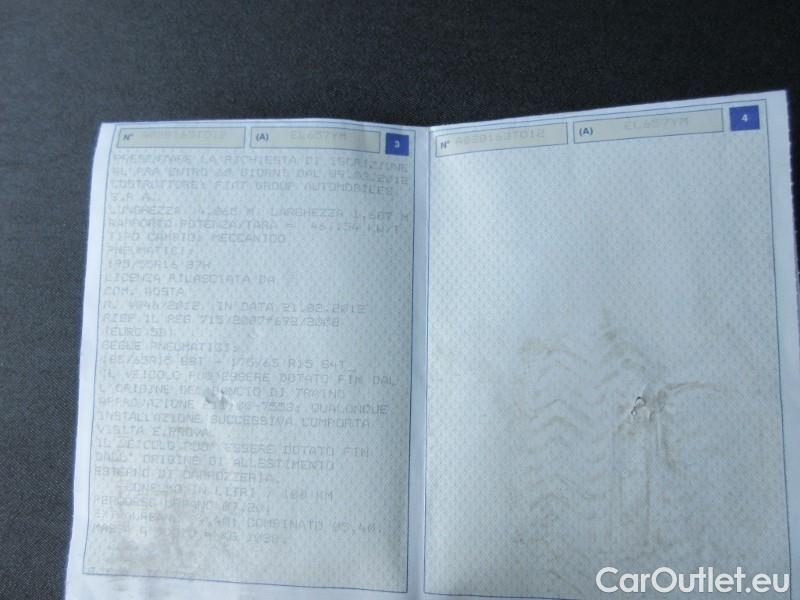 N° A028163TO12 (A) EL657YM 3
PRESENTARE LA RICHIESTA DI ISCRIZIONE
AL PRA ENTRO 60 GIORNI DAL 09.03.2012
COSTRUTTORE: FIAT GROUP AUTOMOBILES
S.P.A.
LUNGHEZZA 4,065 M LARGHEZZA 1,687 M
RAPPORTO POTENZA/TARA = 46,154 KW/T
TIPO CAMBIO: MECCANICO
PNEUMATICI:
195/55R16 87H
LICENZA RILASCIATA DA
COM. AOSTA
N. 4046/2012 IN DATA 21.02.2012
RISP IL REG 715/2007*692/2008
(EURO 5B)
SEGUE PNEUMATICI:
185/65R15 88T - 175/65 R15 84T
IL VEICOLO PUO' ESSERE DOTATO FIN DAL
L'ORIGINE DEL GANCIO DI TRAINO
APPROVAZIONE 00-7553; QUALUNQUE
INSTALLAZIONE SUCCESSIVA COMPORTA
VISITA E PROVA
IL VEICOLO PUO' ESSERE DOTATO FIN
DALL' ORIGINE DI ALLESTIMENTO
ESTERNO DI CARROZZERIA.
CONSUMO IN LITRI / 100 KM
PERCORSO URBANO 07,20;
EXTRAURBANO 4,40; COMBINATO 05,40.
MASSA A = KG 1030.
N° A028163TO12 (A) EL657YM 4
CarOutlet.eu